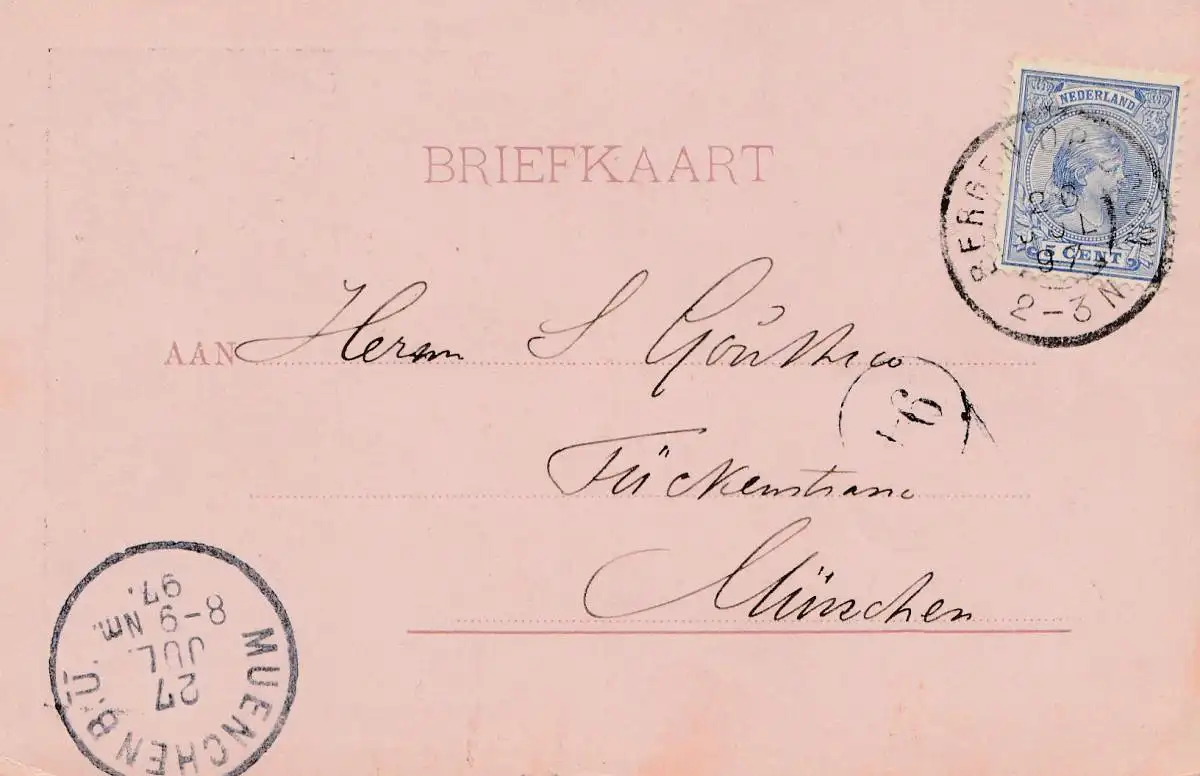 NEDERLAND
5 CENT
BERGEN OP ZOOM
26
JUL
97
2-3 N
BRIEFKAART
AAN Herrn S
6
München
MUENCHEN B.Ü.
27
JUL.
8-9 Nm.
97.